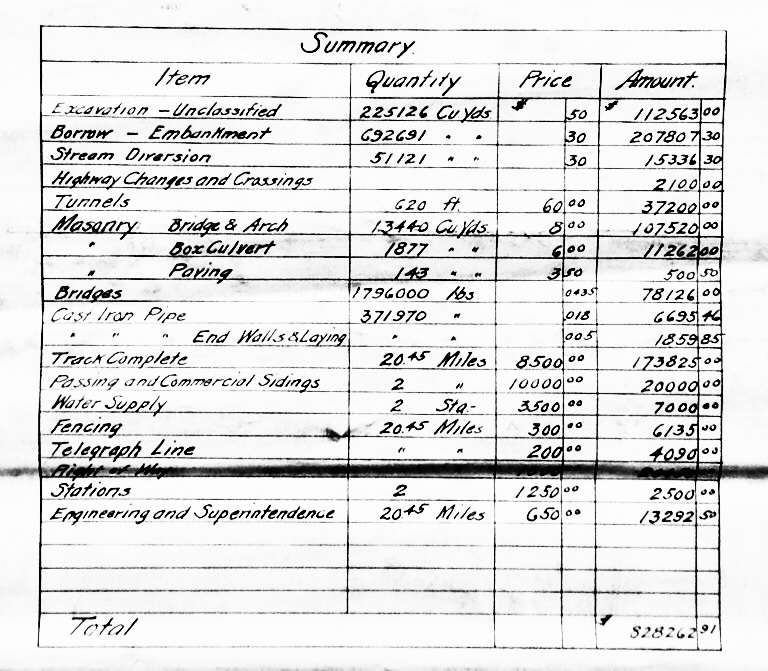 Summary.
Item Quantity Price Amount.
Excavation - Unclassified 225126 Cu Yds $ .50 $ 112563 00
Borrow - Embankment 692691 " " 30 207807 30
Stream Diversion 51121 " " 30 15336 30
Highway Changes and Crossings 2100 00
Tunnels 620 ft 60 00 37200 00
Masonry Bridge & Arch 13440 Cu Yds 8 00 107520 00
" Box Culvert 1877 " " 6 00 11262 00
" Paving 143 " " 3 50 500 50
Bridges 1796000 lbs .0435 78126 00
Cast Iron Pipe 371970 " .018 6695 46
" " " End Walls & Laying " " .005 1859 85
Track Complete 20.45 Miles 8500 00 173825 00
Passing and Commercial Sidings 2 " 10000 00 20000 00
Water Supply 2 Sta- 3500 00 7000 00
Fencing 20.45 Miles 300 00 6135 00
Telegraph Line " " 200 00 4090 00
Right of Way
Stations 2 1250 00 2500 00
Engineering and Superintendence 20.45 Miles 650 00 13292 50
Total $ 828262 91